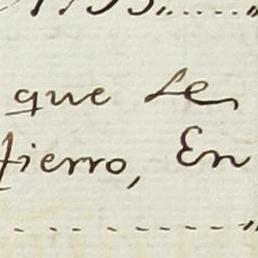 1795,......"
que se
fierro, En
........"